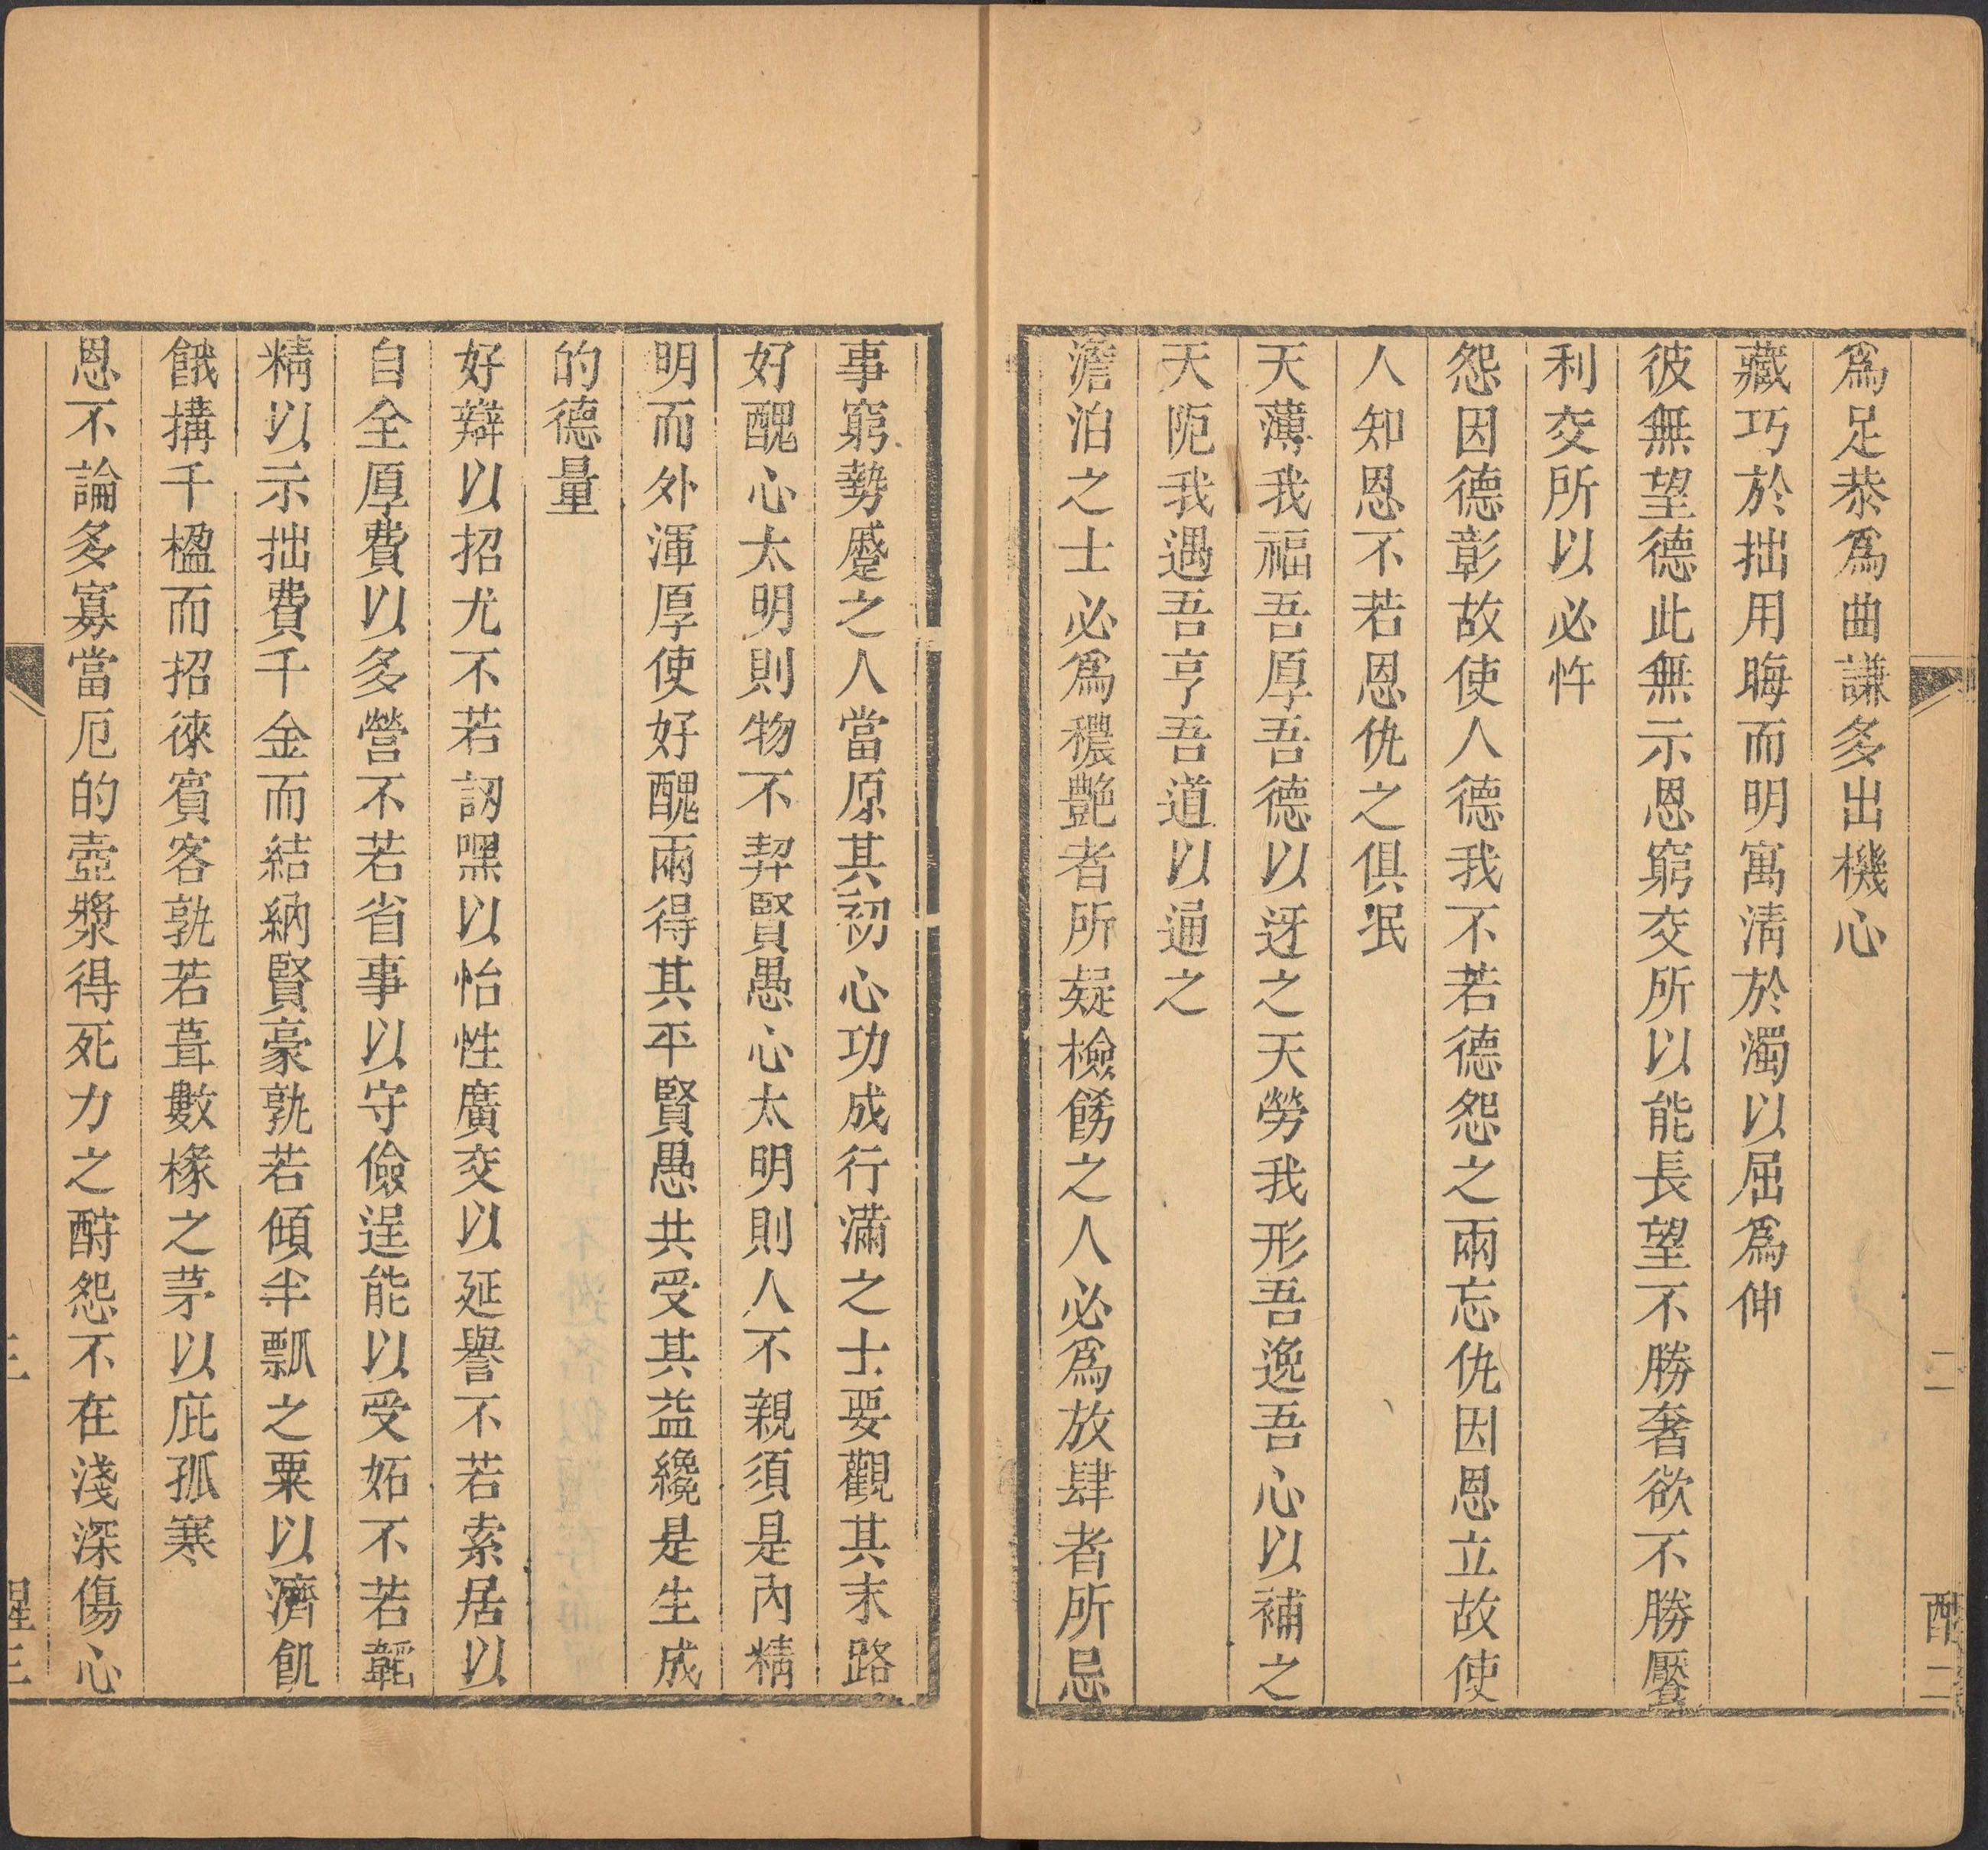 二
酬二
爲足恭爲曲謙多出機心
藏巧於拙用晦而明寓淸於濁以屈爲伸
彼無望德此無示恩窮交所以能長望不勝奢欲不勝饜
利交所以必忤
怨因德彰故使人德我不若德怨之兩忘仇因恩立故使
人知恩不若恩仇之俱泯
天薄我福吾厚吾德以迓之天勞我形吾逸吾心以補之
天阨我遇吾亨吾道以通之
澹泊之士必爲穠艶者所疑檢餝之人必爲放肆者所忌
事窮勢蹙之人當原其初心功成行滿之士要觀其末路
好醜心太明則物不契賢愚心太明則人不親須是內精
明而外渾厚使好醜兩得其平賢愚共受其益纔是生成
的德量
好辯以招尤不若訒嘿以怡性廣交以延譽不若索居以
自全厚費以多營不若省事以守儉逞能以受妬不若韜
精以示拙費千金而結納賢豪孰若傾半瓢之粟以濟飢
餓搆千楹而招徠賓客孰若葺數椽之茅以庇孤寒
恩不論多寡當厄的壺漿得死力之酧怨不在淺深傷心